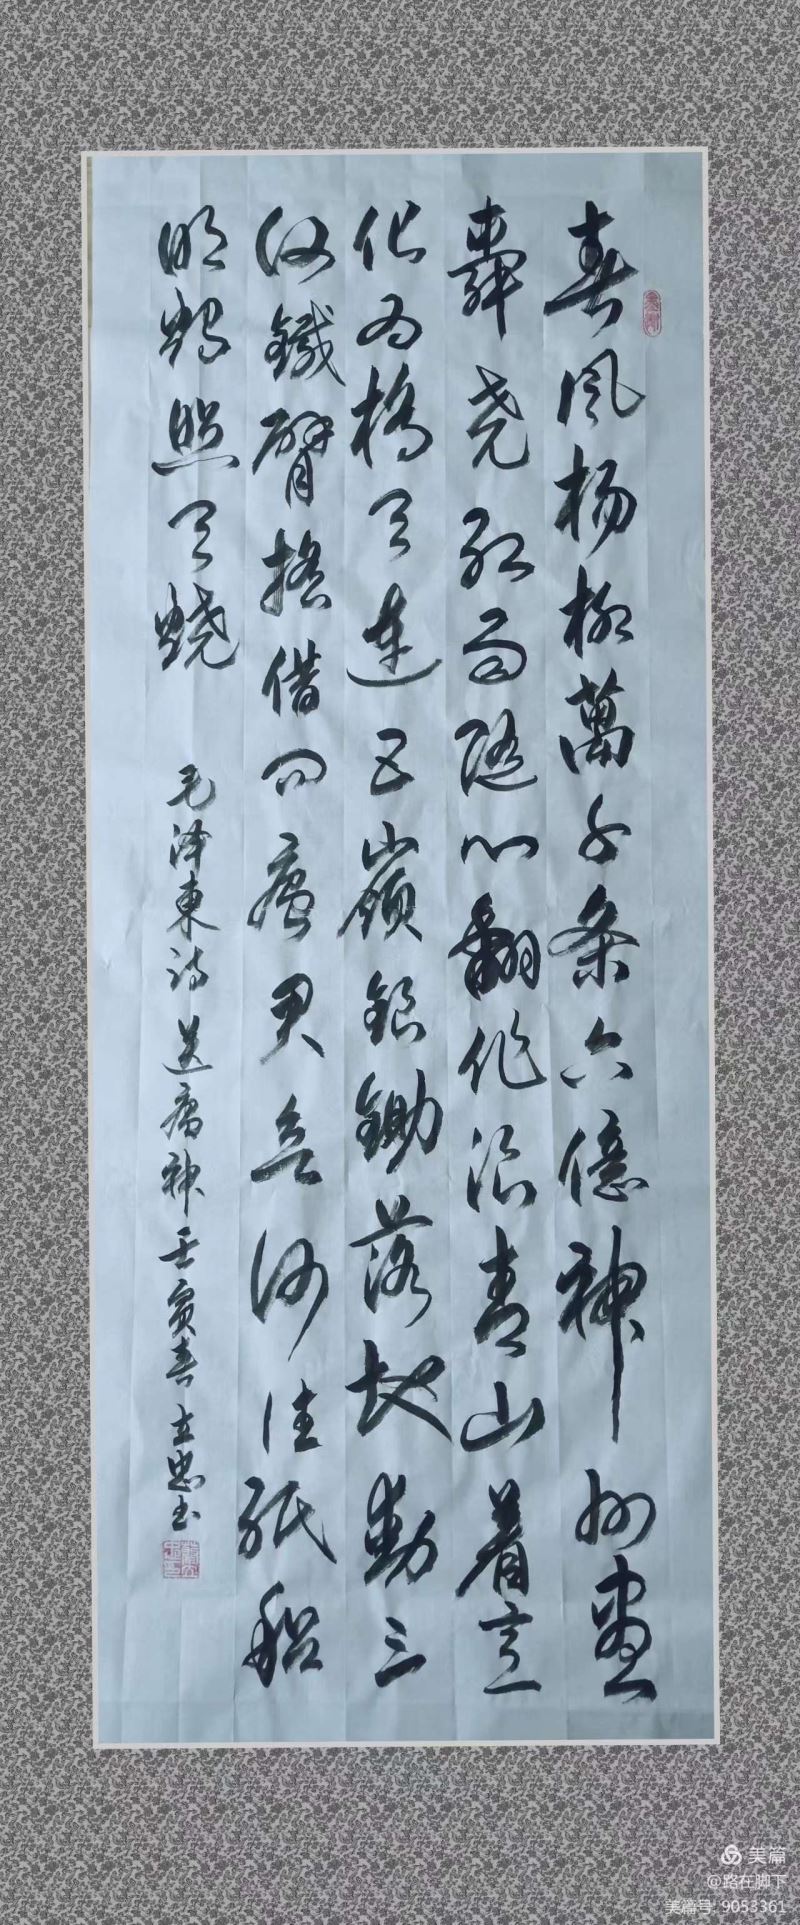 春风杨柳萬千条六億神州盡
舜尧红雨隨心翻作浪青山着意
化为橋天連五嶺銀鋤落地動三
河鐵臂摇借问瘟君欲何往纸船
明烛照天烧
毛泽東诗送瘟神壬寅春立忠书
美篇
@路在脚下
美篇号: 9053361